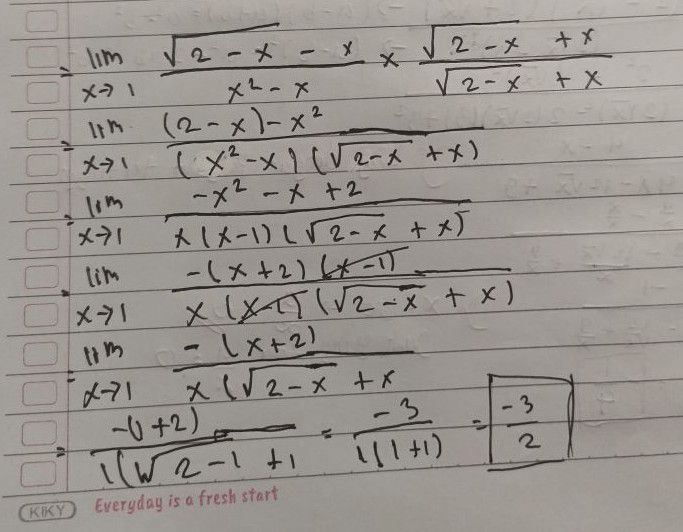 = lim x→1 (√2 - x - x)/(x² - x) × (√2 - x + x)/(√2 - x + x)
= lim x→1 ((2 - x) - x²)/((x² - x)(√2 - x + x))
= lim x→1 (-x² - x + 2)/(x(x-1)(√2 - x + x))
= lim x→1 (-(x+2)(x-1))/(x(x-1)(√2 - x + x))
= lim x→1 (-(x+2))/(x(√2 - x + x
= (-(1+2))/(1(√2 - 1 + 1 = (-3)/(1(1+1)) = -3/2
KIKY Everyday is a fresh start